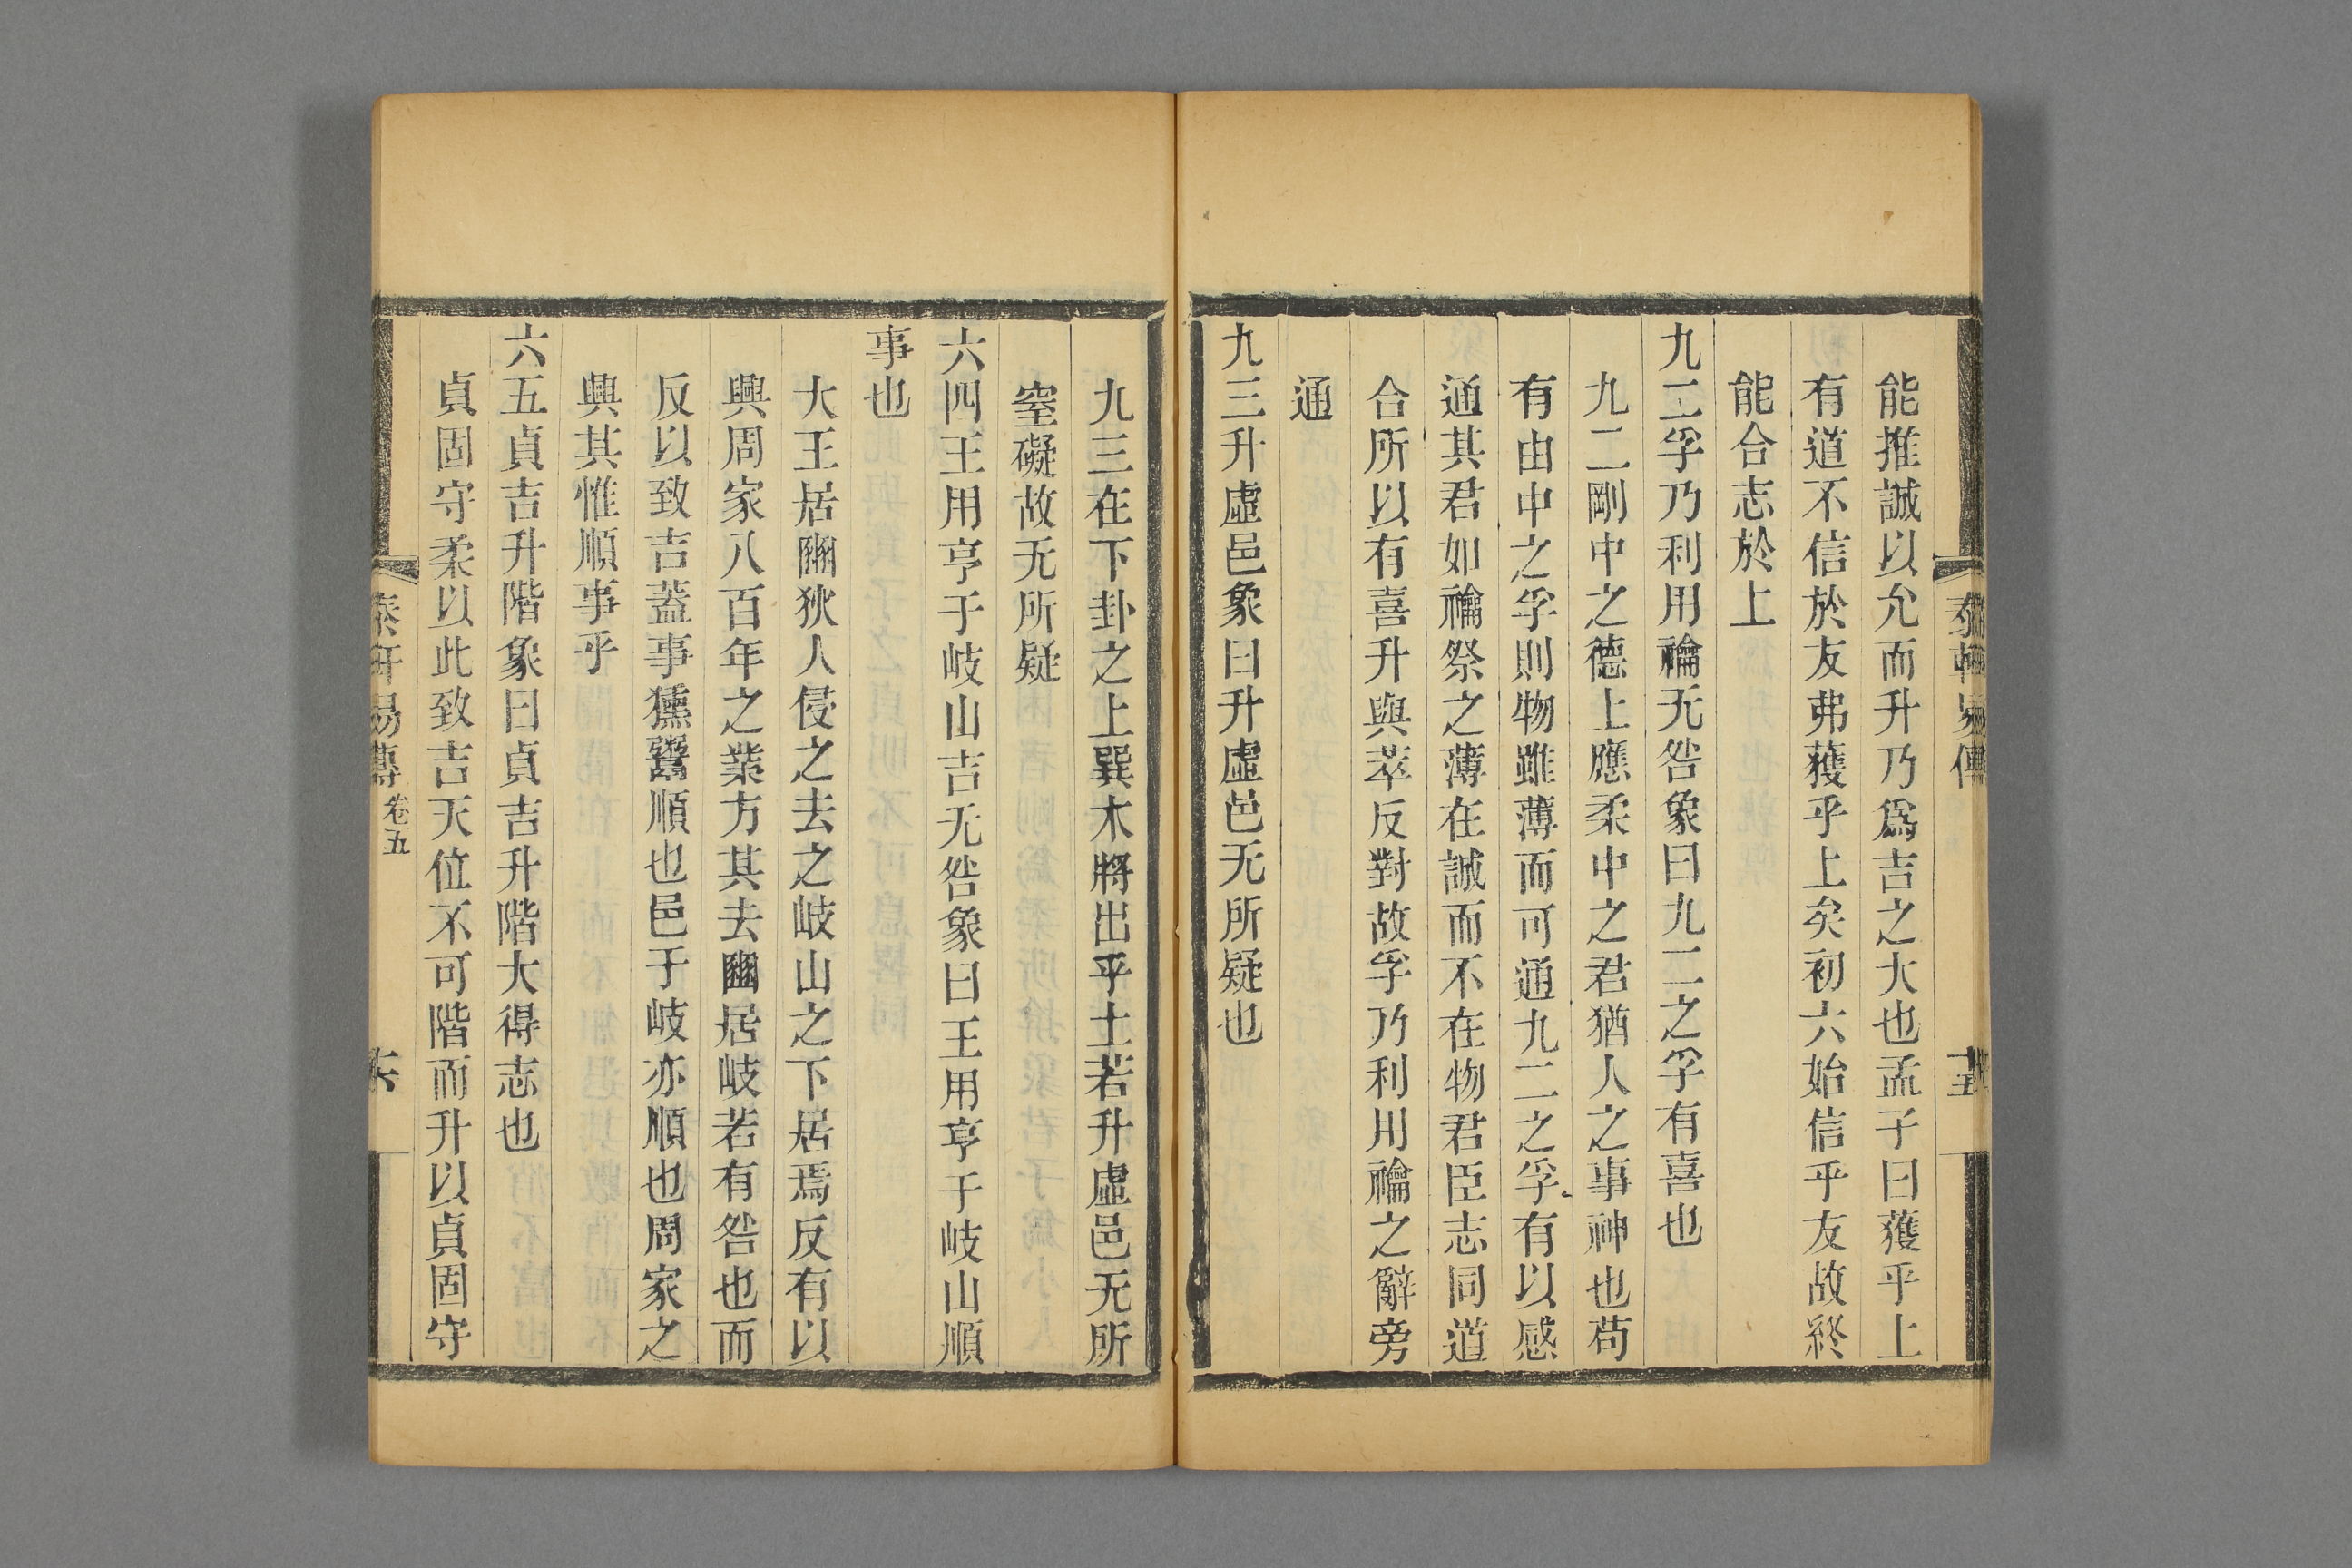 泰軒易傳
十五
能推誠以允而升乃爲吉之大也孟子曰獲乎上
有道不信於友弗獲乎上矣初六始信乎友故終
能合志於上
九二孚乃利用禴无咎象曰九二之孚有喜也
九二剛中之德上應柔中之君猶人之事神也苟
有由中之孚則物雖薄而可通九二之孚有以感
通其君如禴祭之薄在誠而不在物君臣志同道
合所以有喜升與萃反對故孚乃利用禴之辭旁
通
九三升虛邑象曰升虛邑无所疑也
九三在下卦之上巽木將出乎土若升虛邑无所
窒礙故无所疑
六四王用亨于岐山吉无咎象曰王用亨于岐山順
事也
大王居豳狄人侵之去之岐山之下居焉反有以
興周家八百年之業方其去豳居岐若有咎也而
反以致吉蓋事獯鬻順也邑于岐亦順也周家之
興其惟順事乎
六五貞吉升階象曰貞吉升階大得志也
貞固守柔以此致吉天位不可階而升以貞固守
泰軒易傳 卷五
十六